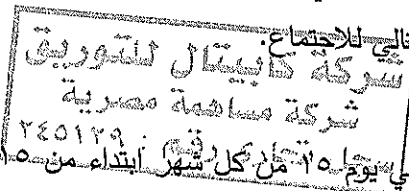 تالي للاجتماع.
شركة كابيتال للتوريق
شركة مساهمة مصرية
٢٤٥١٢٩
ي يوم ٢٥ من كل شهر ابتداء من